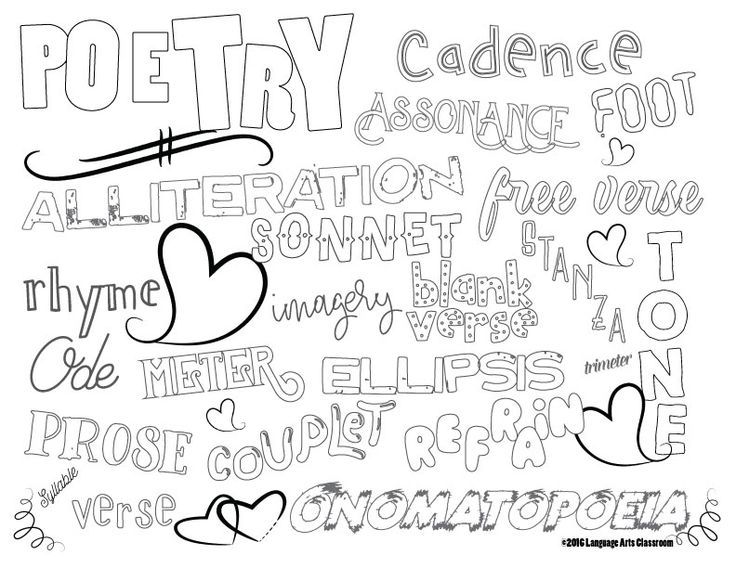 POETRY
Cadence
ASSONANCE
FOOT
ALLITERATION
free verse
SONNET
STANZA
TONE
rhyme
imagery
blank
verse
Ode
METER
ELLIPSIS
trimeter
PROSE
COUPLET
REFRAIN
Syllable
verse
ONOMATOPOEIA
©2016 Language Arts Classroom